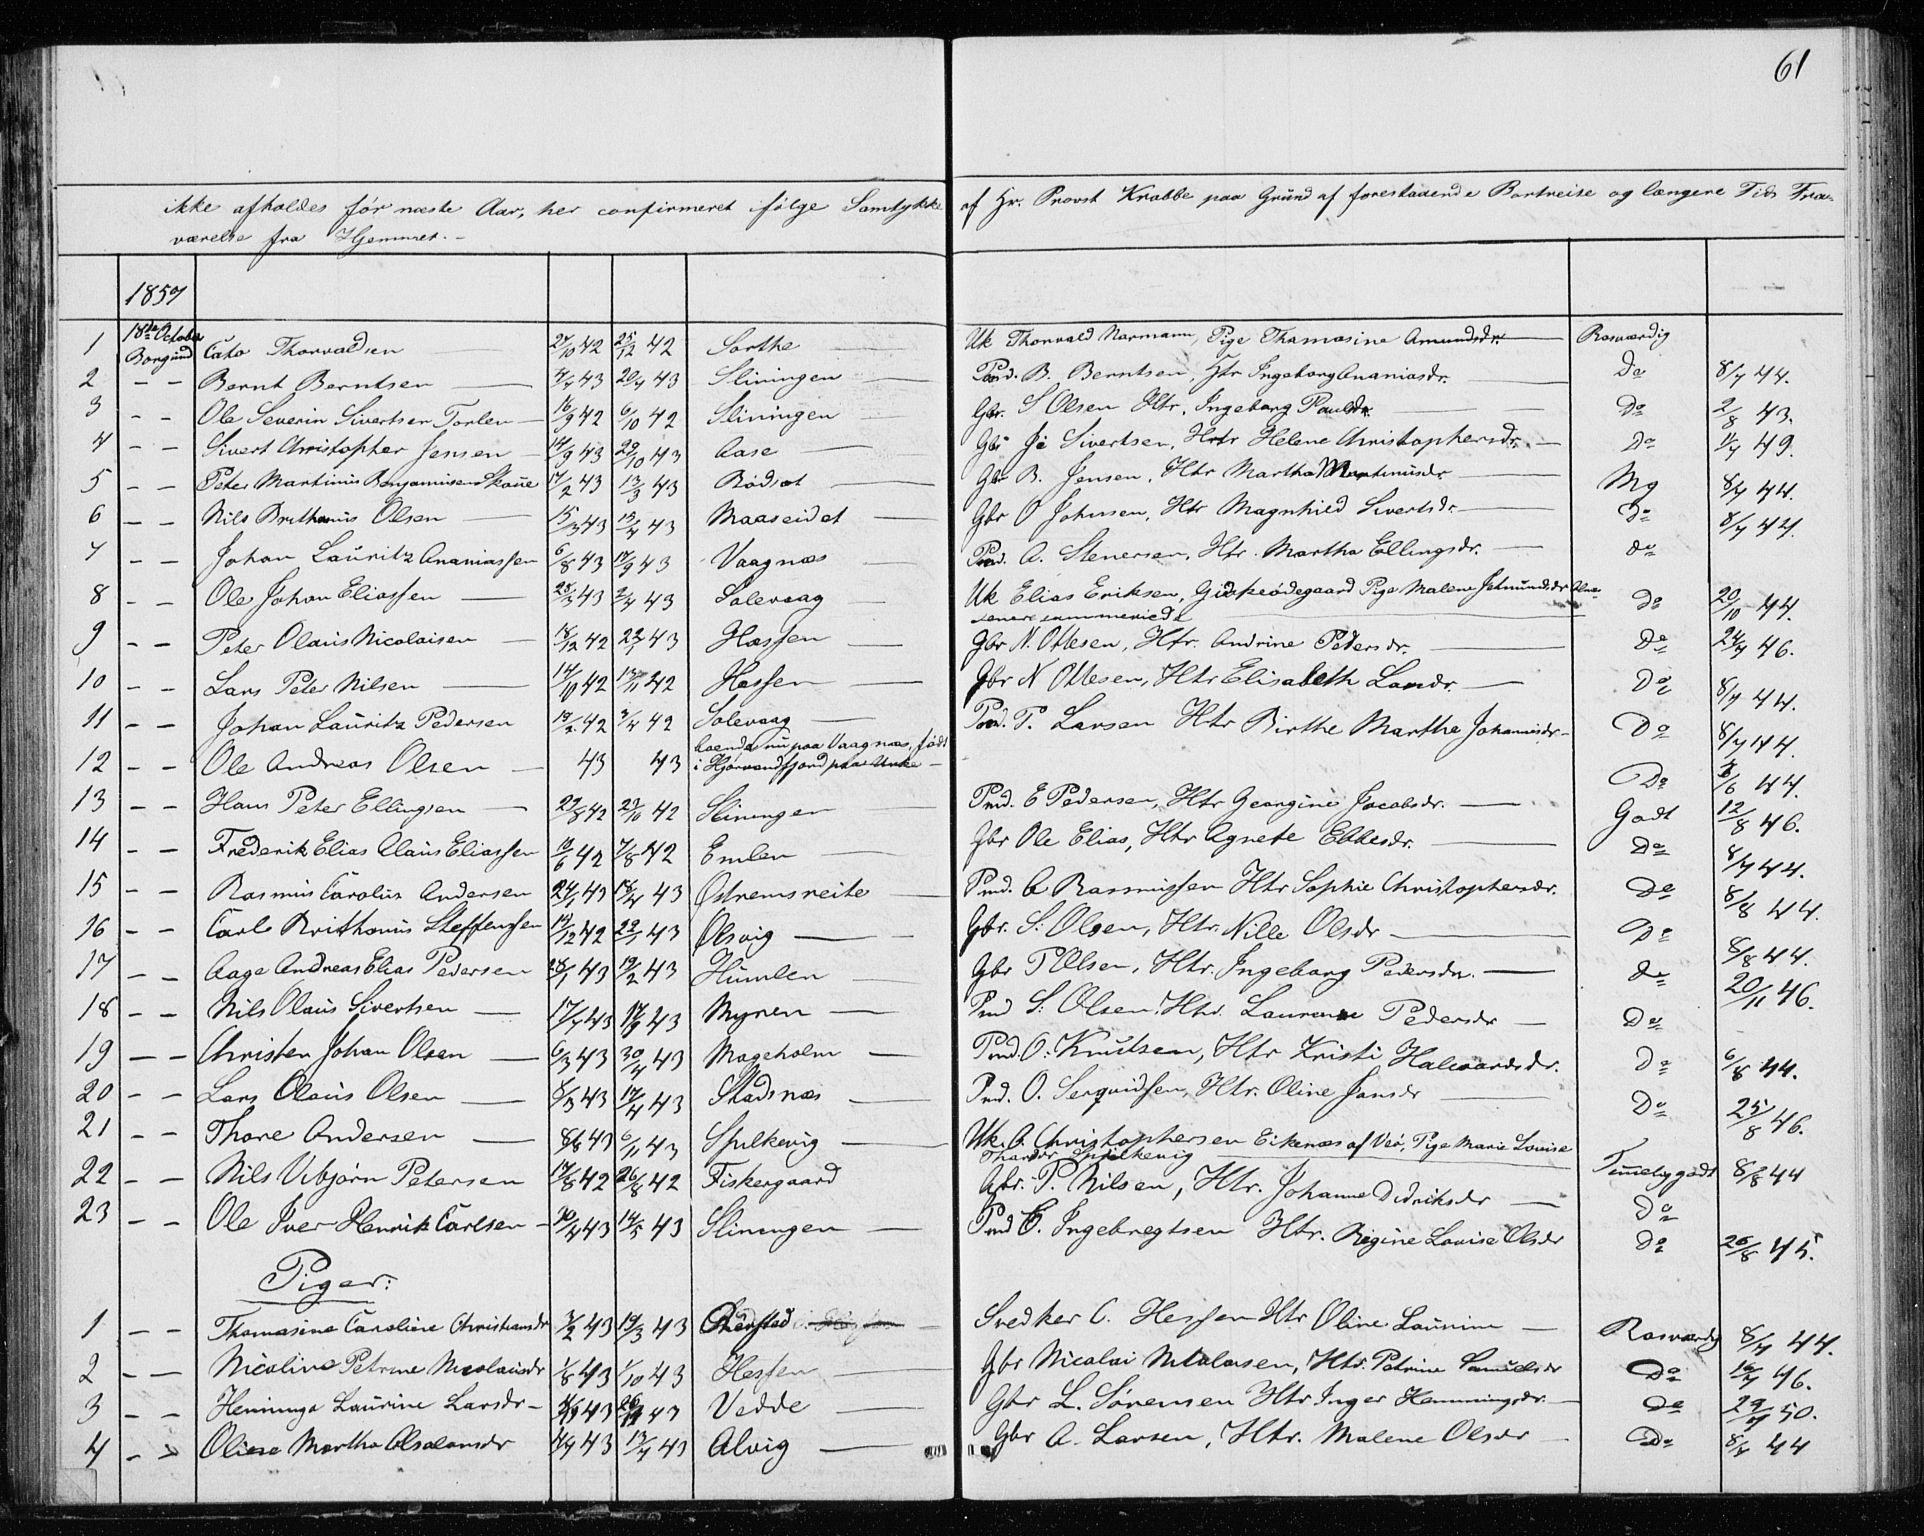 61
ikke afholdes før næste Aar, her confirmeret ifølge Samtykke af Hr. Provst Krabbe paa Grund af forestaaende Bortreise og længere Tids Fra-
værelse fra Hjemmet.-
1857
1 18de October Borgund Cato Thorvaldsen 27/10 42 25/12 42 Sorthe Uk Thorvald Normann, Pige Thomasine Amundsdr. Rosværdig
2 - - Bernt Berntsen 43 20/4 43 Sliningen Pmd. B. Berntsen, Htr Ingeborg Ananiasdr. Do 8/7 44.
3 - - Ole Severin Sivertsen Torlen 16/9 42 6/10 42 Sliningen Gbr. S Olsen Htr. Ingeborg Paulsdr. Do 2/8 43.
4 - - Sivert Christopher Jensen 14/9 43 29/10 43 Aase Gbr Js Sivertsen, Htr Helene Christophersdr. Do 49.
5 - - Peter Martinus Benjaminsen Skoue 17/2 43 13/3 43 Rødset Gbr B. Jensen, Htr Martha Martinusdr. Mg 8/7 44.
6 - - Nils Brithanus Olsen 15/3 43 43 Maaseidet Gbr O Johnsen, Htr Magnhild Sivertsdr. Do 8/7 44.
7 - - Johan Lauritz Ananiassen 6/8 43 17/9 43 Vaagnæs Pmd. A. Stenersen, Htr. Martha Ellingsdr. do
8 - - Ole Johan Eliassen 25/3 43 2/4 43 Solevaag Uk Elias Eriksen, Giskeødegaard Pige Malene Jetmundsdr
senere sammenviede Do 20/10 44.
9 - - Peter Olaus Nicolaisen 18/12 42 43 Hæssen Gbr N. Ottesen, Htr. Andrine Pedersdr. Do 24/7 46.
10 - - Lars Peter Nilsen 14/10 42 13/11 42 Hæssen Gbr N Ottesen, Htr Elisabeth Larsdr. Do 8/7 44.
11 - - Johan Lauritz Pedersen 13/2 42 3/4 42 Solevaag Pmd. P. Larsen Htr Birthe Marthe Johannisdr. Do 8/7 44.
12 - - Ole Andreas Olsen 43 43 boende nu paa Vaagnæs, født
i Hjørendfjord paa Urke Do 44.
13 - - Hans Peter Ellingsen 27/8 42 42 Sliningen Pmd. E Pedersen, Htr Georgine Jacobsdr. Godt 12/8 46.
14 - - Frederik Elias Claus Eliassen 42 7/8 42 Emlen Gbr Ole Elias, Htr Agnete Ebbesdr. Do 8/7 44.
15 - - Rasmus Carolus Andersen 24/1 43 18/4 43 Østremsreite Pmd. A Rasmussen Htr Sophie Christophersdr. Do 8/8 44.
16 - - Carl Brithanus Steffensen 12/12 42 22/1 43 Ølsvig Gbr. S. Olsen, Htr. Nille Olsdr Do 8/8 44.
17 - - Aage Andreas Elias Pedersen 28/1 43 19/2 43 Humlen Gbr P Olsen, Htr. Ingeborg Pedersdr. do 20/11 46.
18 - - Nils Olaus Sivertsen 17/7 43 17/9 43 Myren Pmd S. Olsen. Htr. Laurence Pedersdr Do
19 - - Christen Johan Olsen 6/3 43 30/4 43 Mogeholm Pmd. O. Knutsen, Htr Kristi Halvordsdr. Do 6/8 44.
20 - - Lars Olaus Olsen 8/3 43 17/4 43 Stadsnæs Pmd. O. Serquidsen, Htr. Oline Jonsdr Do 25/8 46.
21 - - Thore Andersen 43 6/11 43 Spilkevig Uk. A. Christophersen Eikenæs af Veø, Pige Marie Lovise
Thorsdr Spilkevig Temmelig godt 8/8 44
22 - - Nils Vebjørn Petersen 17/8 42 26/8 42 Fiskergaard Gbr. P. Nilsen, Htr. Johanne Didriksdr Do
23 - - Ole Iver Henrik Carlsen 43 14/5 43 Sliningen Pmd C. Ingebregtsen Htr. Regine Lovise Olsdr Do 26/8 45.
Piger:
1 - - Thomasine Caroline Christiansdr 3/2 43 19/3 43 Svedker C. Hessen Htr Oline Laurine Rosværdig 8/7 44.
2 - - Nicoline Petrine Nicolaisdr 1/8 43 1/10 43 Hessen Gbr Nicolai Nicolaisen, Htr. Petrine Samuelsdr Do 46.
3 - - Henninga Laurine Larsdr 43 43 Vedde Gbr L. Sørensen Htr Inger Hemmingsdr. Do 50.
4 - - Oliane Martha Absalonsdr 43 43 Alvig Gbr A. Larsen, Htr. Malene Olsdr Do 8/7 44